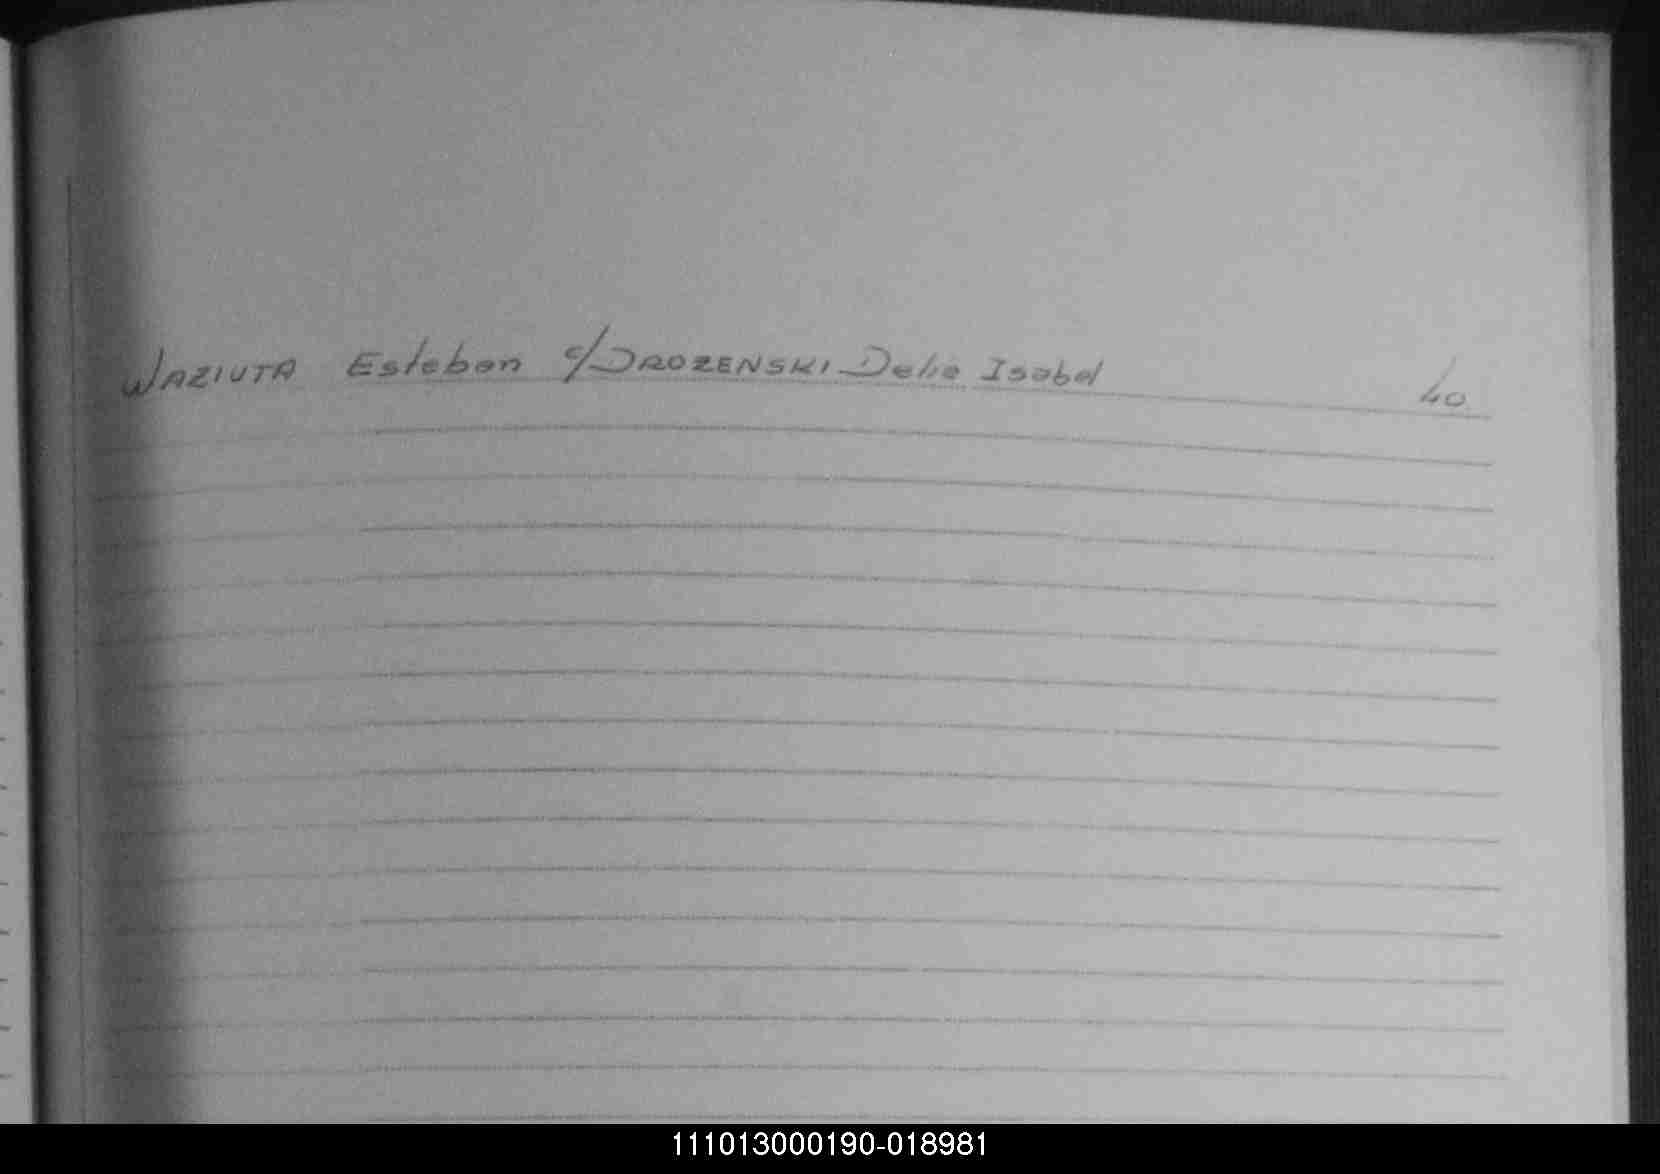 WAZIUTA Esteban c/DROZENSKI Delia Isabel 40
111013000190-018981